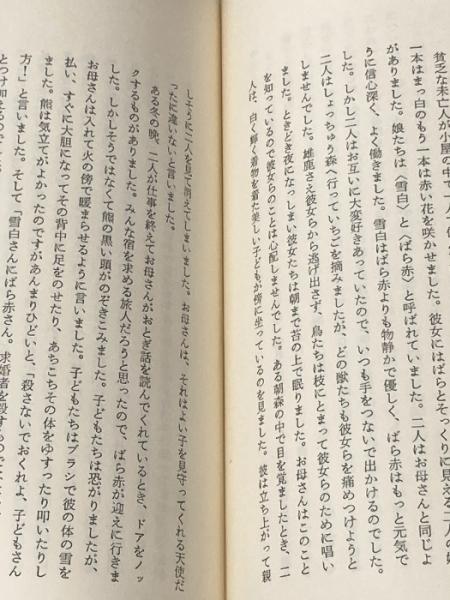 貧乏な未亡人が小屋の中で一人で
一本はまっ白のもう一本は赤い花を咲かせました。彼女にはばらとそっくりに見える二人の娘
がありました。娘たちは〈雪白〉と〈ばら赤〉と呼ばれていました。二人はお母さんと同じよ
うに信心深く、よく働きました。雪白はばら赤よりも物静かで優しく、ばら赤はもっと元気で
した。しかし二人はお互いに大変好きあっていたので、いつも手をつないで出かけるのでした。
二人はしょっちゅう森へ行っていちごを摘みましたが、どの獣たちも彼女らを痛めつけようと
しませんでした。雄鹿さえ彼女らから逃げ出さず、鳥たちは枝にとまって彼女らのために唱い
ました。ときどき夜になってしまい彼女たちは朝まで苔の上で眠りました。お母さんはこのこと
を知っているので彼女らのことは心配しませんでした。ある朝森の中で目を覚ましたとき、二
人は、白く輝く着物を着た美しい子どもが傍に坐っているのを見ました。彼は立ち上がって親
しそうに二人を見て消えてしまいました。お母さんは、それはよい子を見守ってくれる天使だ
ったに違いないと言いました。
ある冬の晩、二人が仕事を終えてお母さんがおとぎ話を読んでくれているとき、ドアをノッ
クするものがありました。みんな宿を求める旅人だろうと思ったので、ばら赤が迎えに行きま
した。しかしそうではなくて熊の黒い頭がのぞきこみました。子どもたちは恐がりましたが、
お母さんは入れて火の傍で暖まらせるように言いました。子どもたちはブラシで彼の体の雪を
払い、すぐに大胆になってその背中に足をのせたり、あちこちその体をゆすったり叩いたりし
ました。熊は気立てがよかったのですがあんまりひどいと、「殺さないでおくれよ、子どもさん
方！」と言いました。そして「雪白さんにばら赤さん。求婚者を殺すもの
とつけ加える